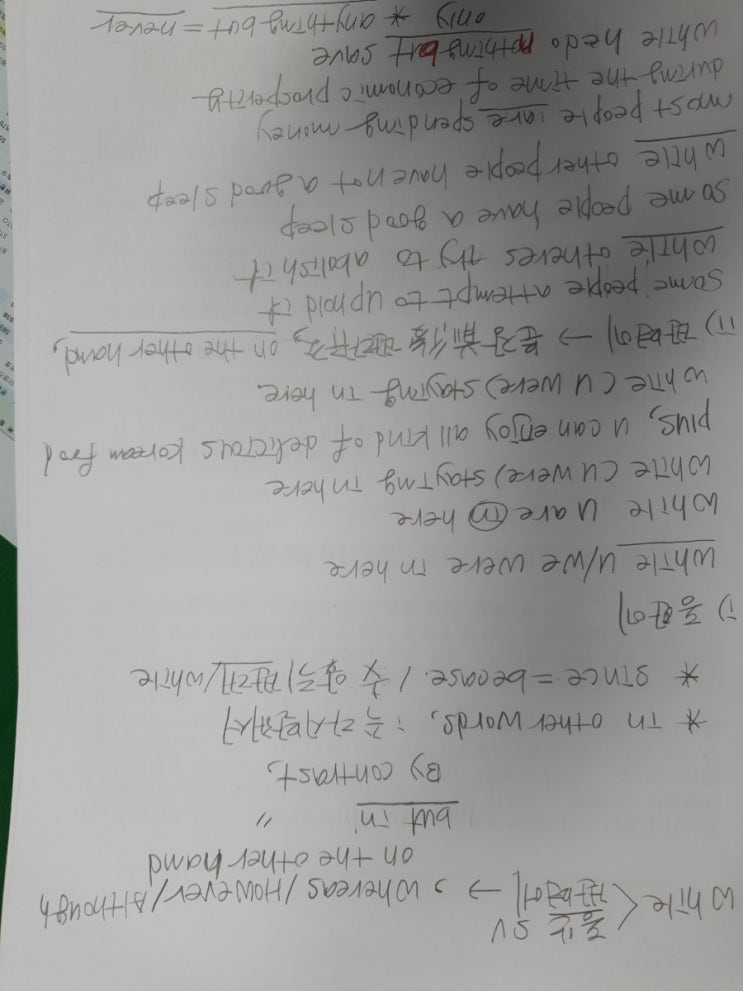 while < 동안 SV
반면에 → , whereas / However / Although
on the other hand
but in "
By contrast,
* in other words, : 즉 다시말해서
* since = becaose. / 주
while
i) 동안에
while u/we were in here
while u are in here
while (u were) staying in here
plus, u can enjoy all kind of delicious korean food
while (u were) staying in here
ii) 반면에 → on the other hand,
some people attempt to uphold it
while otheres try to abolish it
some people have a good sleep
while other people have not a good sleep
most people are spending money
during the time of economic prosperity
while he do nothing but save
only * anything but = never